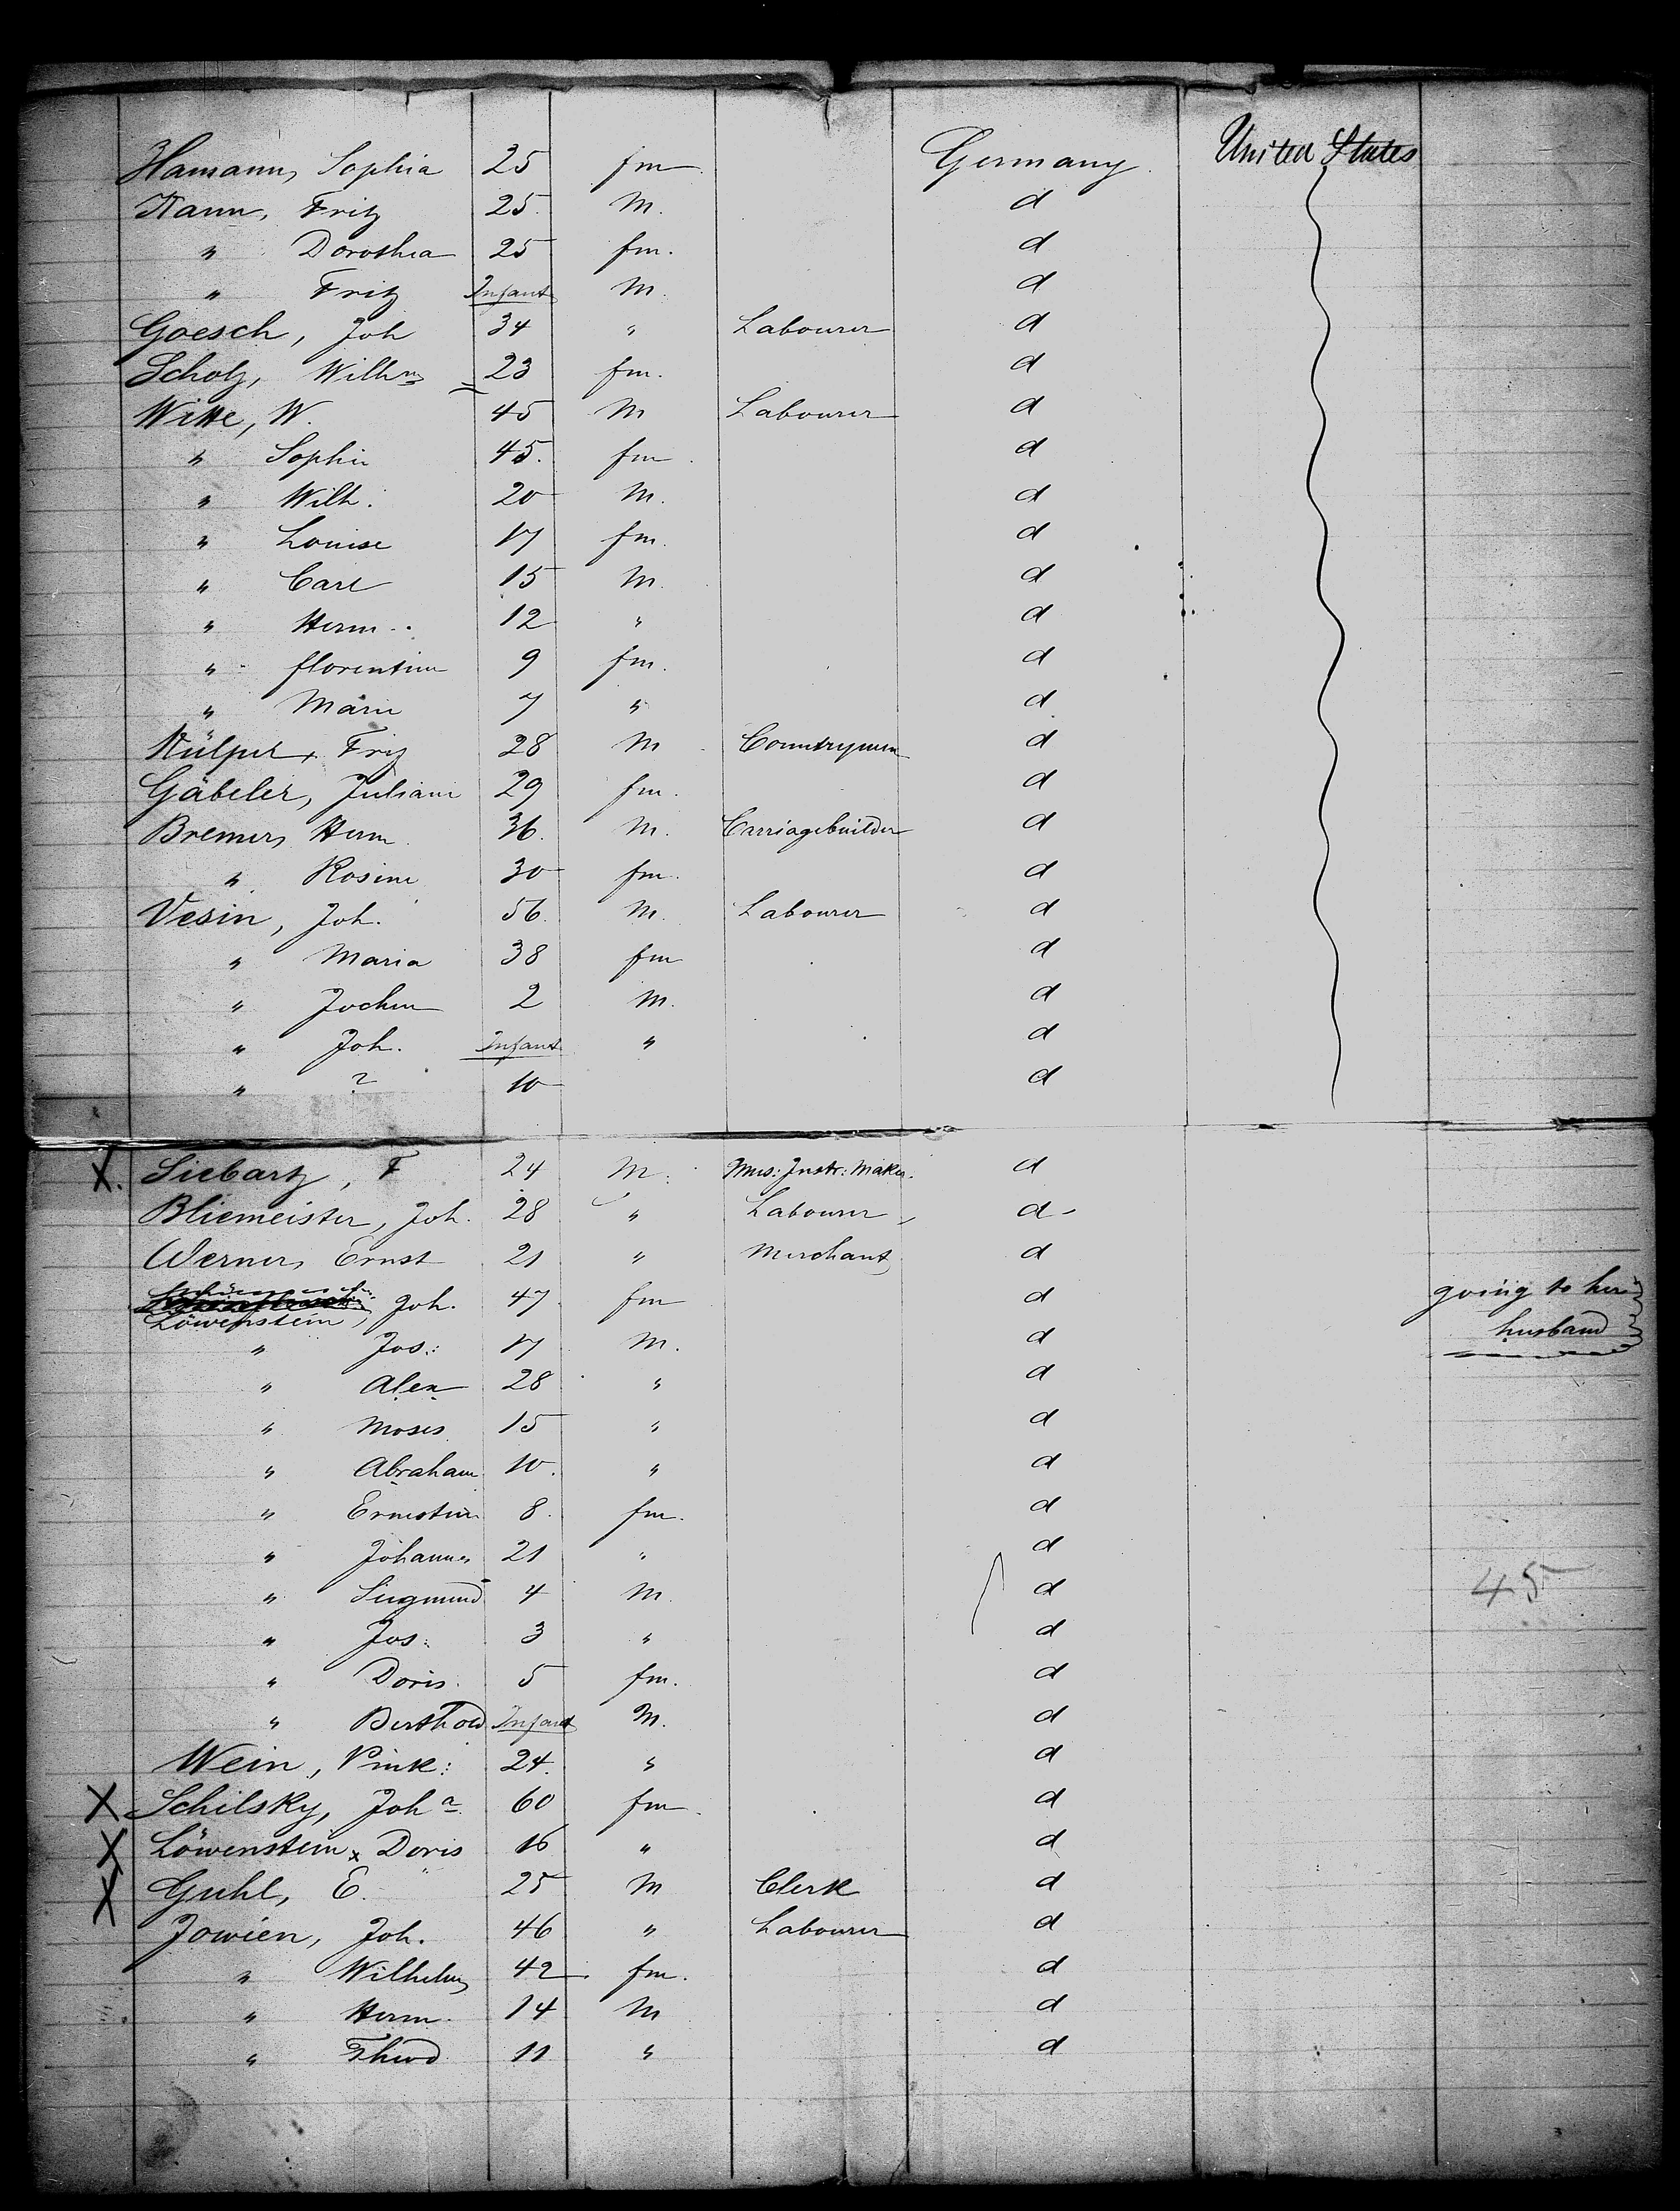 Hamann, Sophia 25 fm. Germany. United States
Kann, Fritz 25. M. d
" Dorothea 25 fm. d
" Fritz Infant M. d
Goesch, Joh 34 " Labourer d
Scholz, Wilhm 23 fm. d
Witte, W. 45 M Labourer d
" Sophie 45. fm. d
" Wilh. 20 M. d
" Louise 17 fm. d
" Carl 15 M. d
" Herm. 12 " d
" florentine 9 fm. d
" Marie 7 " d
Külper, Friz 28 M Countryman d
Gäbeler, Juliane 29 fm. d
Bremer, Herm. 36. M. Carriagebuilder d
" Rosine 30 fm. d
Vesin, Joh. 56. M. Labourer d
" Maria 38 fm d
" Jochen 2 M. d
" Joh. Infant " d
" ? 10 d
X. Siebartz, F 24 M. Mus: Instr: Maker. d
Bliemeister, Joh. 28 " Labourer, d
Werner, Ernst 21 " Merchant d
Löwenstein, Joh. 47 fm d going to her husband
" Jos: 17 M. d
" Alex 28 " d
" Moses 15 " d
" Abraham 10. " d
" Ernestine 8. fm. d
" Johanne 21 " d
" Siegmund 4 M. d 45
" Jos: 3 " d
" Doris. 5 fm. d
" Berthold Infant M. d
Wein, Pink: 24. " d
X Schilsky, Joha 60 fm. d
X Löwenstein x Doris 16 " d
X Guhl, E. 25 M Clerk d
Jowien, Joh. 46 " Labourer d
" Wilhelm 42 fm. d
" Herm. 14 M d
" Theod 11 " d